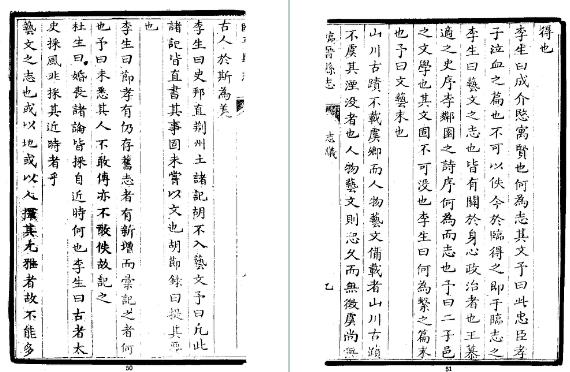 得也
李生曰成介愍寓賢也何為志其文予曰此忠臣孝
子泣血之篇也不可以佚今於臨得之即于臨志之
李生曰藝文之志也皆有關於身心政治者也王慕
適之史序李鄰園之詩序何為而志也予曰二子邑
之文學也其文固不可没也李生曰何為繫之篇末
也予曰文藝末也
山川古蹟不載虞鄉而人物藝文備載者山川古蹟
不虞其湮没者也人物藝文則恐久而無徵虞尚無
臨晉縣志 志儀
51
古人於斯為美
李生曰史邦直荆州土諸記胡不入藝文予曰凡此
諸記皆直書其事固未嘗以文也胡節錄曰提其要
也
李生曰節孝有仍存舊志者有新增而彙記之者何
也予曰未悉其人不敢傳亦不敢佚故記之
杜生曰婚喪諸論皆採自近時何也李生曰古者太
史採風非採其近時者乎
藝文之志也或以地或以人撰其尤雅者故不能多
50